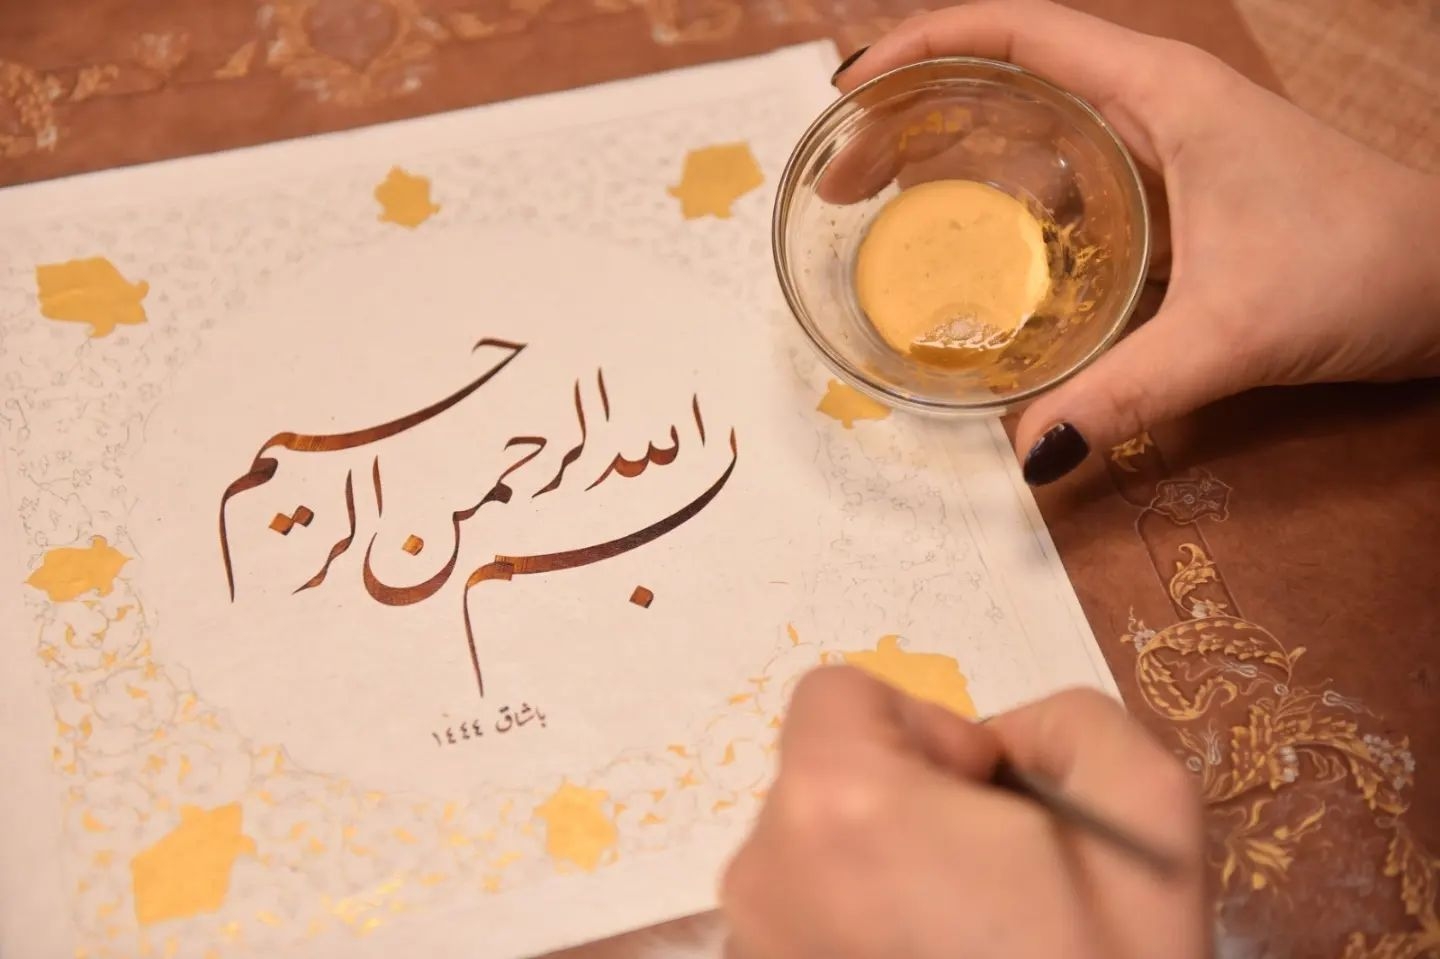 بسم الله الرحمن الرحیم
باشاق ١٤٤٤